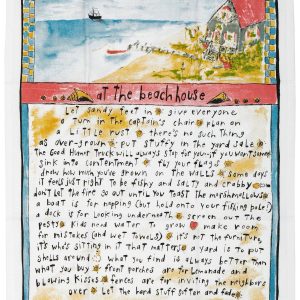 at the beach house
Let sandy feet in give everyone
a turn in the captain's chair plan on
a Little rust there's no such thing
as over-grown put stuffy in the yard sale
The Good Humor Truck will always stop for you if you want
sink into contentment fly your flags
draw how much you've grown on the walls some days
it feels just right to be fishy and salty and crabby
don't let the fire go out until you toast the marshmallows
a boat is for napping (but hold onto your fishing pole!)
a dock is for looking underneath screen out the
pests kids need water to grow make room
for mistakes (and wet towels) it's not the furniture,
it's who's sitting in it that matters a yard is to put
shells around what you find is always better than
what you buy front porches are for lemonade and
blowing kisses fences are for inviting the neighbors
over Let the hard stuff soften and fade